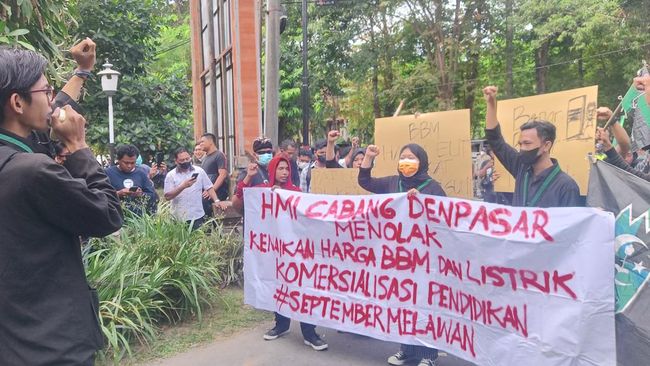 HMI CABANG DENPASAR
MENOLAK
KENAIKAN HARGA BBM DAN LISTRIK
KOMERSIALISASI PENDIDIKAN
#SEPTEMBERMELAWAN
BBM